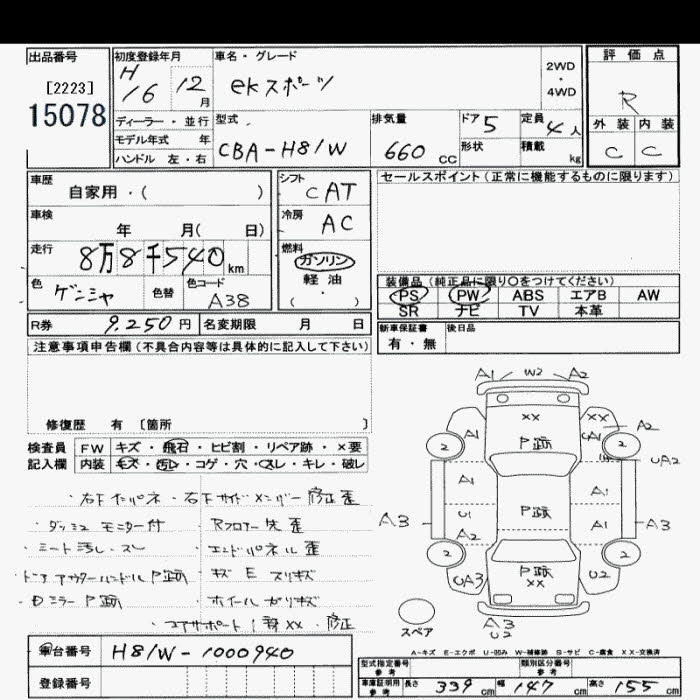 出品番号
[2223]
15078
初度登録年月
H
16 12月
ディーラー・並行
モデル年式 年
ハンドル 左・右
車名・グレード
ekスポーツ
2WD
・
4WD
型式
CBA-H81W
排気量
660 cc
ドア 5
形状
定員 4人
積載 kg
評価点
R
外装 内装
C C
車歴
自家用・( )
車検
年 月( 日)
走行
8万8千540 km
色
色替
色コード
A38
シフト
CAT
冷房
AC
燃料
ガソリン
軽油
( )
セールスポイント(正常に機能するものに限ります)
装備品(純正品に限り○をつけてください)
PS PW ABS エアB AW
SR ナビ TV 本革
新車保証書
有・無
後日品
R券 9,250円 名変期限 月 日
注意事項申告欄(不具合内容等は具体的に記入して下さい)
修復歴 有 〔箇所 〕
検査員
記入欄
FW キズ・飛石・ヒビ割・リペア跡・×要
内装 キズ・汚レ・コゲ・穴・スレ・キレ・破レ
・右下インパネ・右下サイドメンバー修正歪
・ダッシュモニター付
Rフロアー先歪
・シート汚レ・スレ
エンドパネル歪
・ドアアウターハンドルP跡
キズ E スリキズ
・Dミラー P跡
ホイールガリキズ
コアサポート1部XX・修正
A1 W2 A2
XX XX
A1 P跡 CA1 A2
2 2
UA2
A1 A1
A3 U1 P跡 A1 A3
A2
2 2
UA3 P跡 U2
XX
A3
U2
スペア
A-キズ E-エクボ U-凹み W-補修跡 S-サビ C-腐食 XX-交換済
車台番号 H81W-1000940
登録番号
型式指定番号
参考
類別区分番号
参考
車庫証明用
参考
長さ 339cm 幅 147cm 高さ 155cm